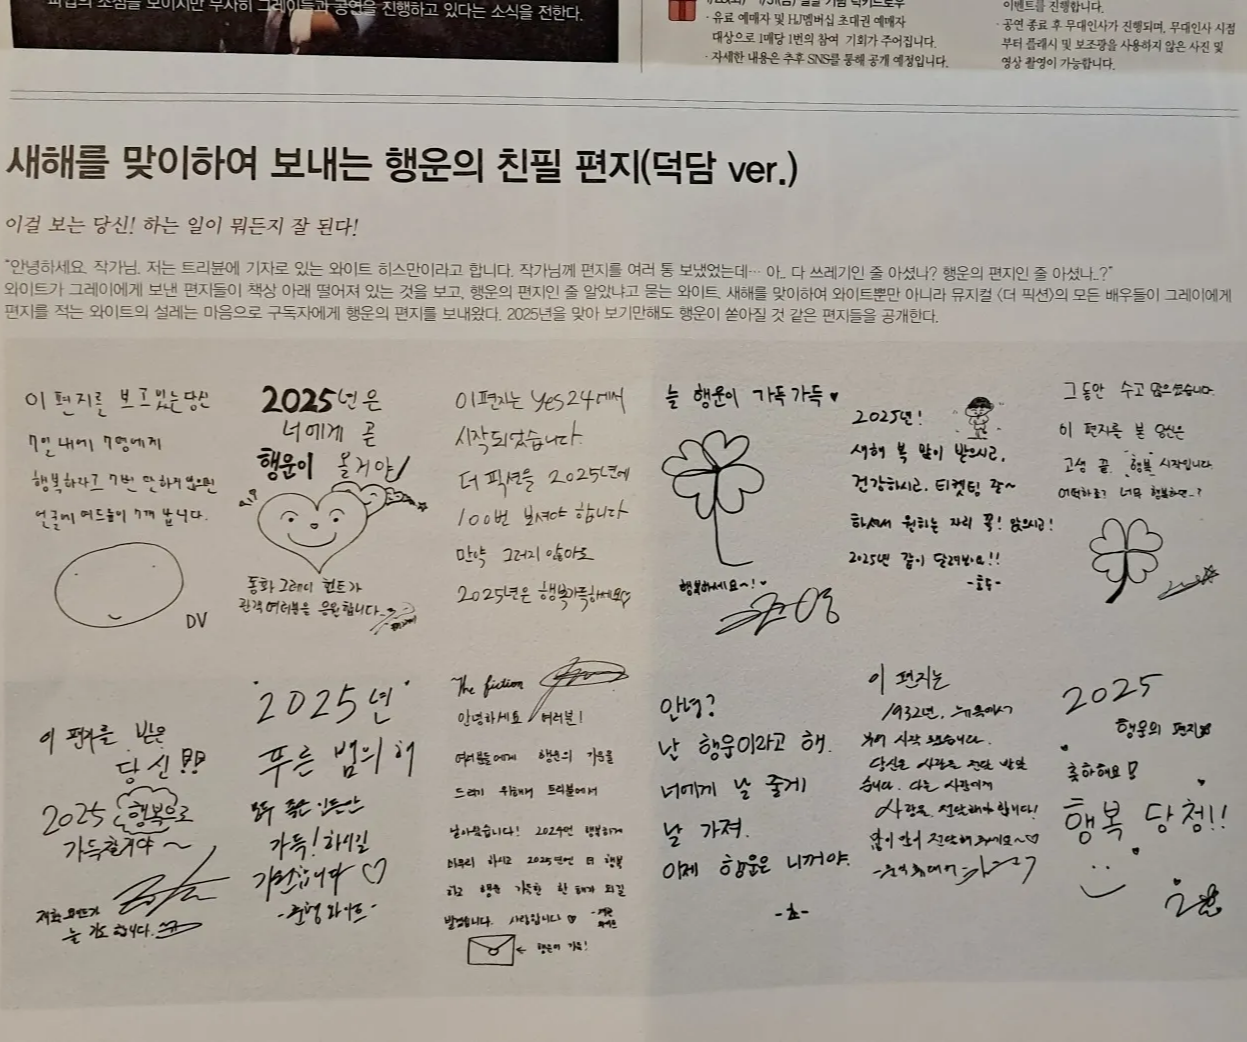 무사히 그레이들과 공연을 진행하고 있다는 소식을 전한다.
· 유료 예매자 및 HJ멤버십 초대권 예매자
대상으로 1매당 1번의 참여 기회가 주어집니다.
· 자세한 내용은 추후 SNS를 통해 공개 예정입니다.
이벤트를 진행합니다.
· 공연 종료 후 무대인사가 진행되며, 무대인사 시점
부터 플래시 및 보조광을 사용하지 않은 사진 및
영상 촬영이 가능합니다.
새해를 맞이하여 보내는 행운의 친필 편지(덕담 ver.)
이걸 보는 당신! 하는 일이 뭐든지 잘 된다!
"안녕하세요. 작가님. 저는 트리뷴에 기자로 있는 와이트 히스만이라고 합니다. 작가님께 편지를 여러 통 보냈었는데… 아.. 다 쓰레기인 줄 아셨나? 행운의 편지인 줄 아셨나..?"
와이트가 그레이에게 보낸 편지들이 책상 아래 떨어져 있는 것을 보고, 행운의 편지인 줄 알았냐고 묻는 와이트. 새해를 맞이하여 와이트뿐만 아니라 뮤지컬 〈더 픽션〉의 모든 배우들이 그레이에게
편지를 적는 와이트의 설레는 마음으로 구독자에게 행운의 편지를 보내왔다. 2025년을 맞아 보기만해도 행운이 쏟아질 것 같은 편지들을 공개한다.
이 편지를 보고 있는 당신
7일 내에 7명에게
행복하라고 7번 말하지 않으면
얼굴에 여드름이 7개 납니다.
DV
2025년은
너에게 곧
행운이 올거야!
동화 그레이 휜트가
관객 여러분을 응원합니다
이 편지는 yes24에서
시작되었습니다.
더 픽션을 2025년에
100번 보셔야 합니다
만약 그러지 않아도
2025년은 행복가득하세요♡
늘 행운이 가득가득♥
행복하세요~!
2025년!
새해 복 많이 받으시고,
건강하시고, 티켓팅 잘~
하셔서 원하는 자리 꼭! 앉으시고!
2025년 같이 달려봐요!!
그동안 수고 많으셨습니다.
이 편지를 본 당신은
고생 끝. 행복 시작입니다.
어떡하죠? 너무 행복하면..?
이 편지를 받은
당신!!
2025 행복으로
가득할거야~
늘 합니다.
"2025년"
푸른 뱀의 해
모두 좋은 일들만
가득! 하시길
기원합니다 ♡
The fiction
안녕하세요 여러분!
여러분들에게 행운의 기운을
드리기 위해서 트리뷴에서
날아왔습니다! 2024년 행복하게
마무리 하시고 2025년엔 더 행복
하고 행운 가득한 한 해가 되길
바랍니다. 사랑합니다 ♡
← 행운이 가득!
안녕?
난 행운이라고 해.
너에게 날 줄게
날 가져.
이제 행운은 니꺼야.
이 편지는
1932년, 뉴욕에서
부터 시작 됐습니다.
당신은 사랑을 전달 받았
습니다. 다른 사람에게
사랑을 전달해야 합니다!
많이 많이 전달해주세요~♡
2025
행운의 편지
축하해요!
행복 당첨!!